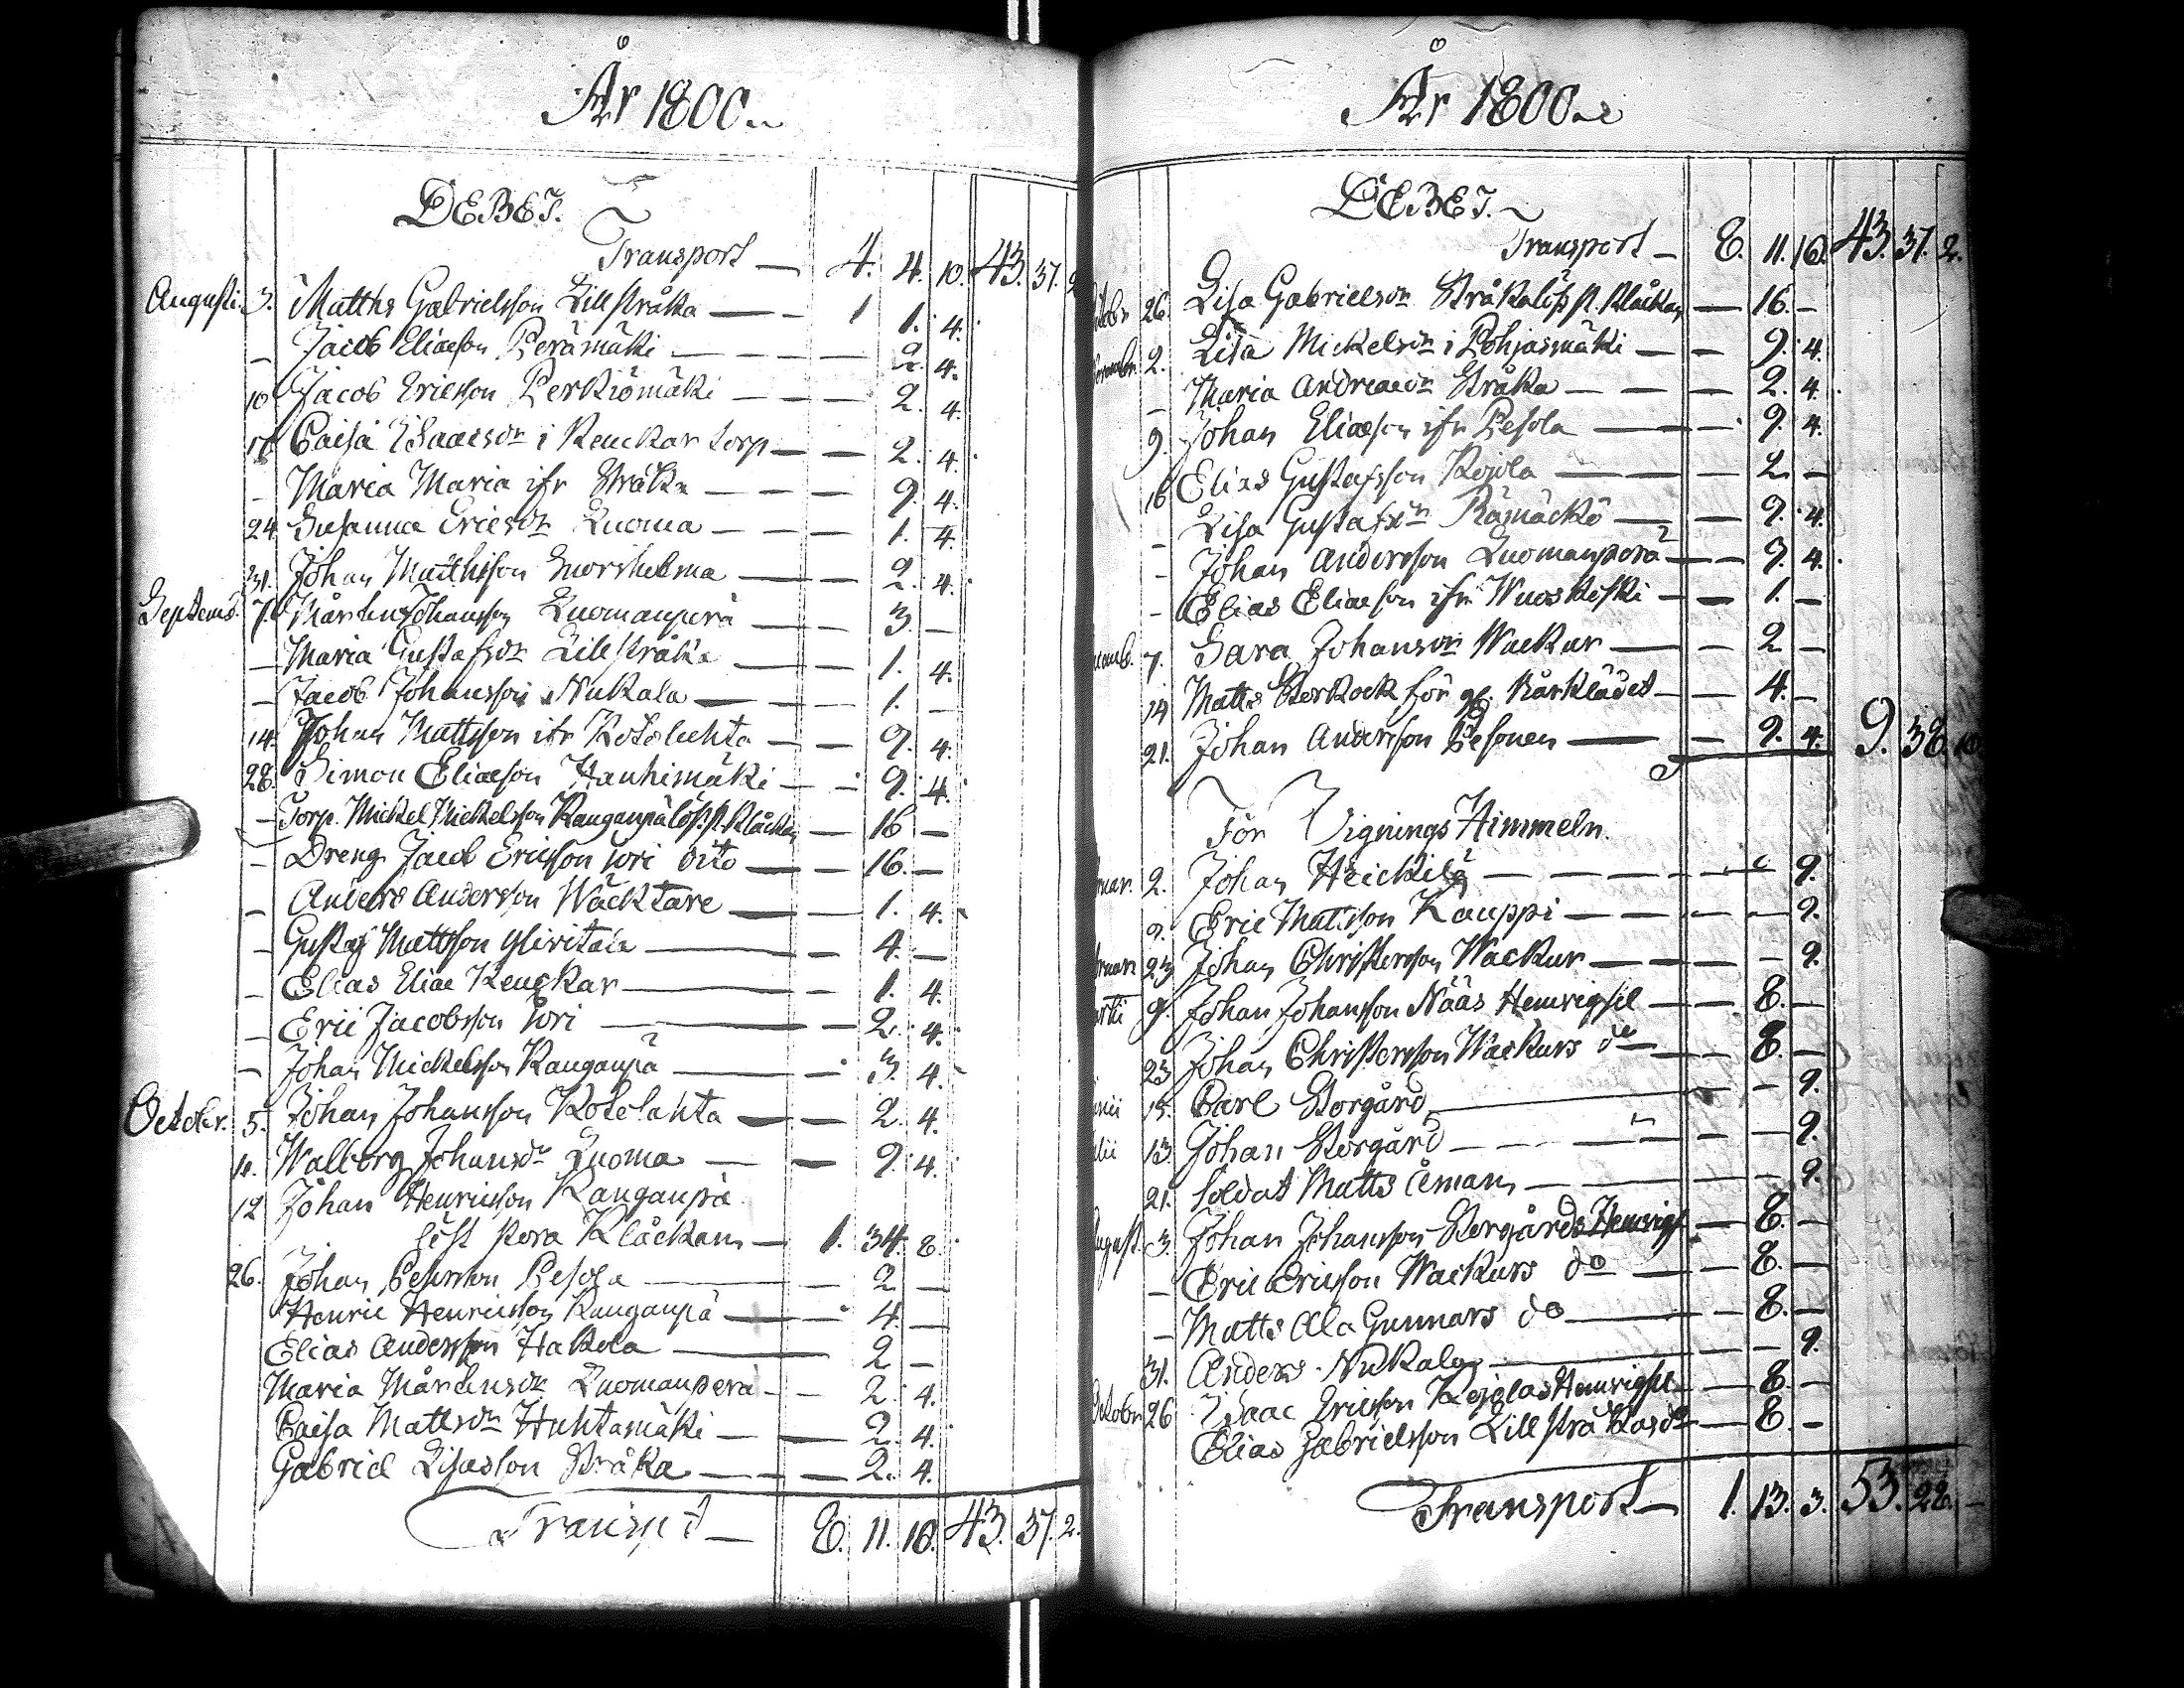 År 1800.
DEBET.
Transport — 4. 4. 10. 43. 37. 2
Augusti. 3. Matths Gabrielsson Lillstråka — 1 1. 4.
— Jacob Eliæson Perämäki — 2. 4.
10 Jacob Ericsson Perkiömäki — 2. 4.
Caisa Isaacsdr i Keuckar torp — 2. 4.
— Maria Maria ifr Stråka — 2. 4.
24. Susanna Ericsdr Luoma — 1. 4.
31. Johan Matthsson — 2. 4.
Septemb. 7. Mårten Johansson Luomanperä — 3. —
— Maria Gustafsdr Lillstråka — 1. 4.
— Jacob Johansson Nukala — 1. —
14. Johan Mattsson ifr Kotoluhta — 2. 4.
28. Simon Eliæson Hanhimäki — 2. 4.
— Torp. Mickel Mickelsson Kanganpä löst. st. Klåckan — 16 —
— Dreng Jacob Ericsson Wri dito — 16. —
— Anders Andersson Wäcktare — 1. 4.
— Gustaf Mattsson Ylivitala — 4. —
— Elias Eliæ Keuckar — 1. 4.
— Eric Jacobsson Wri — 2. 4.
— Johan Mickelsson Kanganpä — 3. 4.
October. 5. Johan Johansson Kotolahta — 2. 4.
11. Walborg Johansdr Luoma — 2. 4.
12 Johan Henricsson Kanganpä
löst stora Klåckan — 1. 34. 8.
26. Johan Pesola — 2 —
Henric Henricsson Kanganpä — 4. —
Elias Andersson Hakola — 2 —
Maria Mårtensdr Luomanperä — 2. 4.
Caisa Mattsdr Huhtamäki — 2. 4.
Gabriel Lisasson Stråka — 2. 4.
Transpt — 8. 11. 10. 43. 37. 2.
År 1800.
DEBET.
Transport — 8. 11. 10. 43. 37. 2.
26. Lisa Gabrielsdr Stråka löst st. Klåckan — 16. —
2. Lisa Mickelsdr i Pohjasmäki — 2. 4.
— Maria Andreædr Stråka — 2. 4.
9. Johan Eliæson ifr Pesola — 2. 4.
16 Elias Gustafsson Kojola — 2 —
— Lisa Gustafsdr Rämäckö — 2. 4.
— Johan Andersson Luomanperä — 2. 4.
— Elias Eliæson ifr Wuoskoski — 1. —
7. Sara Johansdr Wackur — 2 —
14 Matts Storkock för gl. Bårklädet — 4. —
21. Johan Andersson Pesonen — 2. 4. 9. 38. 10
För Vignings Himmeln.
2. Johan Heickilä — 9.
9. Eric Matsson Kauppi — 9.
23 Johan Christersson Wackur — 9.
9. Johan Johansson Nääs Hemvigsel — 8. —
23 Johan Christersson Wackurs do — 8. —
15. Carl Storgård — 9.
13 Johan Storgård — 9.
21. Soldat Matts Åman — 9.
August. 3. Johan Johansson Storgårds Hemvigs — 8. —
— Eric Ericsson Wackurs do — 8. —
— Matts Ala Gunnars do — 8. —
31. Anders Nukala — 9.
October 26 Isaac Ericsson Kojolas Hemvigsel — 8. —
Elias Gabrielsson Lillstråkas do — 8. —
Transport — 1. 13. 3. 53. 28. —